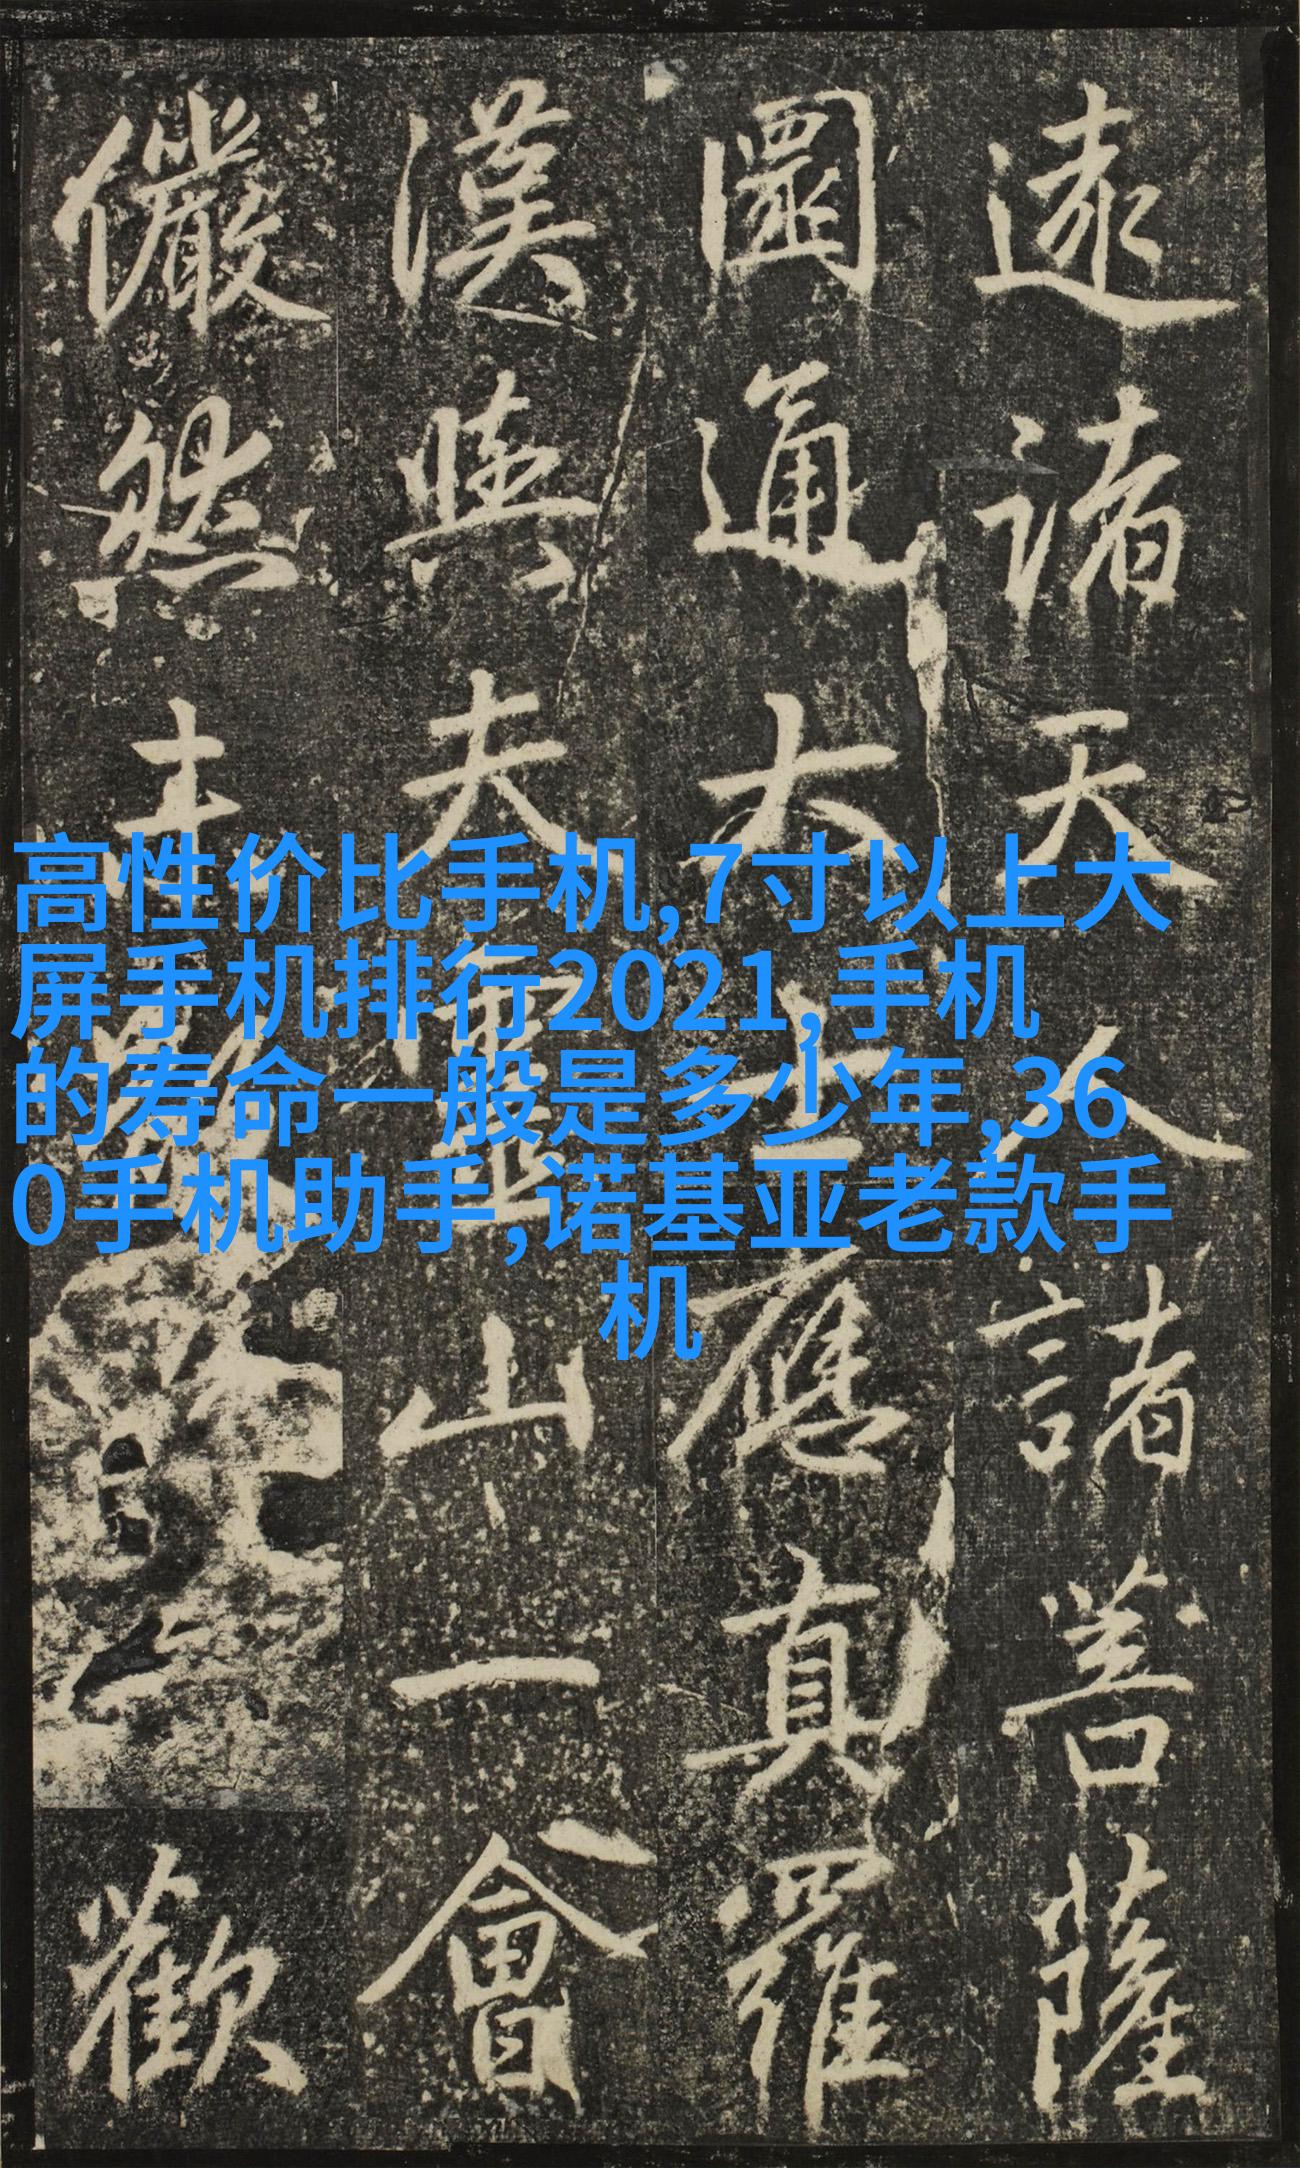 遠諸天人諸菩薩
圓通大士應真羅
漢與夫靈山一會
儼然未散歡
高性价比手机,7寸以上大
屏手机排行2021,手机
的寿命一般是多少年,36
0手机助手,诺基亚老款手
机